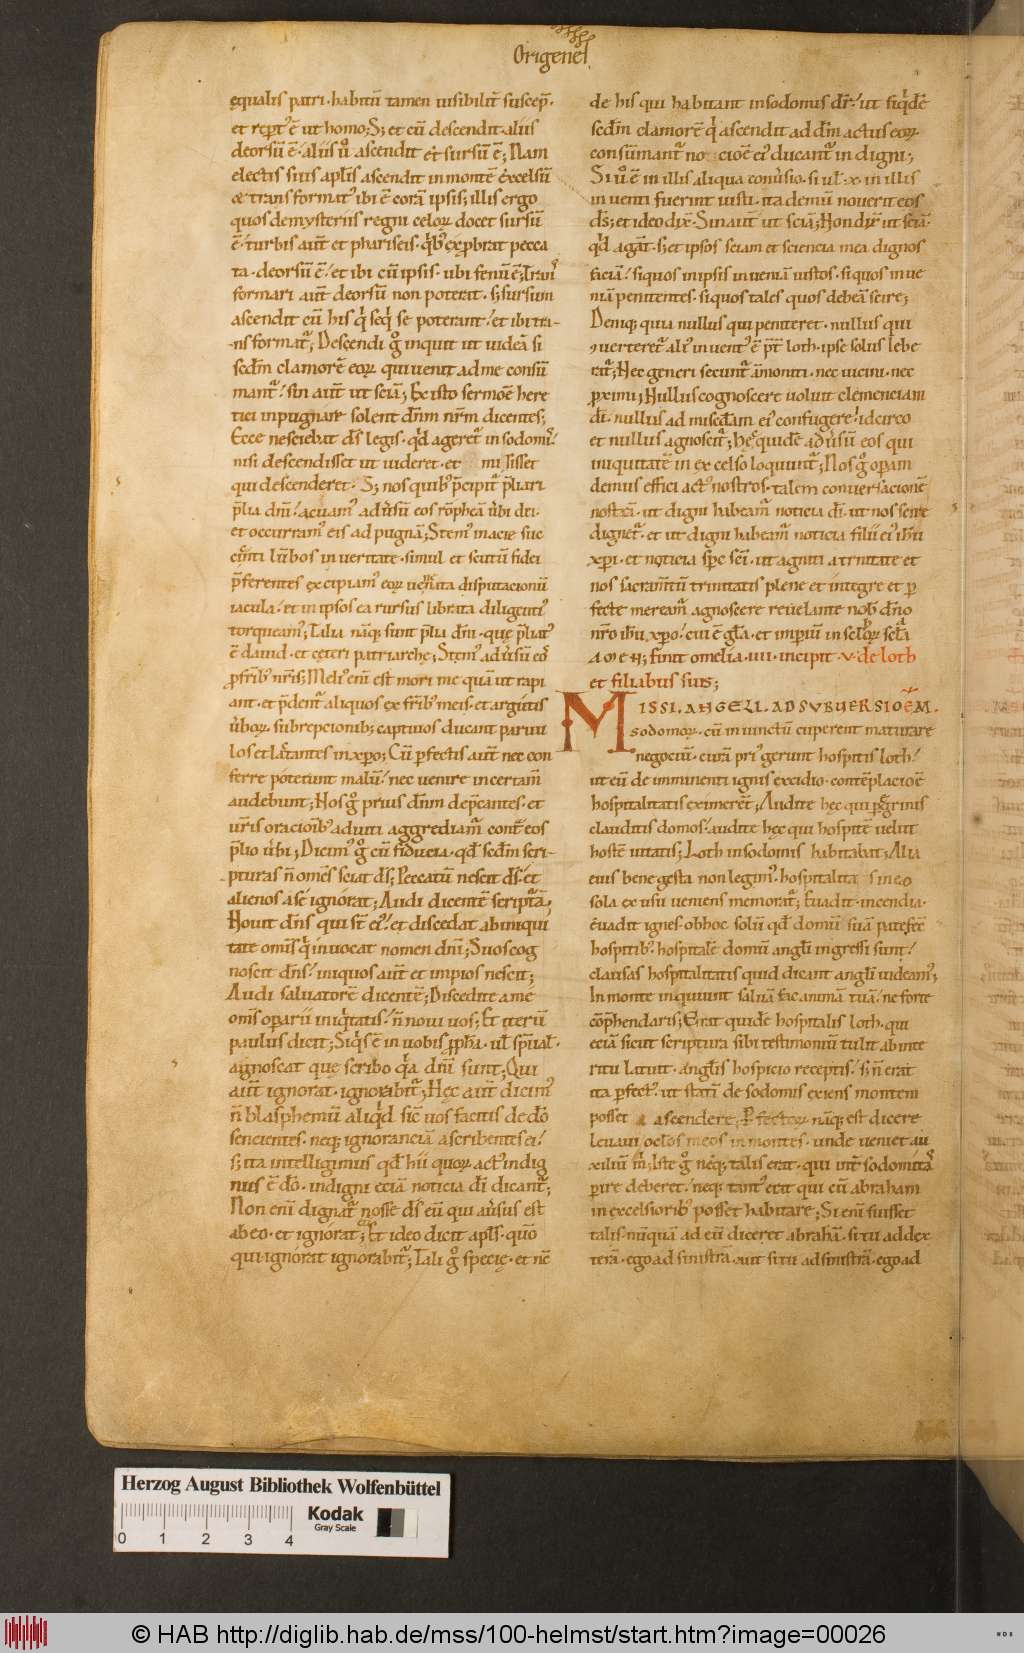 Origenes
ęqualis patri · habitū tamen uisibilit̄ suscep̄ ·
et rep̄t' ē ut homo; S; et cū descendit · aliis
deorsū ē · aliis ů ascendit et sursū ē; Nam
electis suis apl̄is ascendit in montē excelsū
& transformat' ibi ē corā ipsis; illis ergo
quos de mysteriis regni celoꝝ docet sursū
ē · turbis aūt et phariseis · q̇b' exprobrat pecca
ta · deorsū ē · et ibi cū ipsis · ubi fenū ē; Trans
formari aūt deorsū non poterit · s; sursum
ascendit cū his q̇ seq̇ se poterant · et ibi tra-
nsformat̄; Descendi g̊ inquit ut uideā si
sedm̄ clamorē eoꝝ qui uenit ad me consū
mant̄ · sin aūt ut sciā; Ex isto sermoē here
tici inpugnare solent dn̄m nr̄m dicentes;
Ecce nesciebat ds̄ legis · qd̄ ageret̄ in sodomis
nisi descendisset ut uideret · et misisset
qui descenderet · S; nos quib' p̄cipit̄ p̄liari
p̄lia dn̄i · acuam' adusū eos romphęā uerbi dei ·
et occurram' eis ad pugnā; Stem' in acie suc
cincti lūbos in ueritate · simul et scutū fidei
p̄ferentes excipiam' eoꝝ uenenata disputacionū
iacula · et in ipsos ea rursus librata diligenti'
torqueam'; Talia nāq; sunt p̄lia dn̄i · quę p̄liat'
ē dauid · et ceteri patriarchę; Stem' aduersū eos
p fr̄ib' nr̄is; Meli' eni est mori me quā ut rapi
ant · et p̄dent̄ aliquos ex fr̄ib' meis · et argutis
ůboꝝ subrepcionib; captiuos ducant paruu
los et lactantes in xp̄o; Cū p̄fectis aūt nec con
ferre poterunt manū · nec uenire in certam̄
audebunt; Nos g̊ prius dn̄m dep̄cantes · et
ur̄is oracionib' adiuti aggrediam̄ cont̄ eos
p̄lio ůbi; Dicim' g̊ cū fiducia · qd̄ sedm̄ scri-
pturas n̄ om̄s sciat ds̄; Peccatū nescit ds̄ · et
alienos a se ignorat; Audi dicentē scripturā;
Nouit dn̄s qui st̄ ei' · et discedat ab iniqui
tate om̄is q̇ inuocat nomen dn̄i; Suos cog
noscit dn̄s · iniquos aūt et impios nescit;
Audi saluatorē dicentē; Discedite a me
om̄s operarii iniq̇tatis · n̄ noui uos; Et iterū
paulus dicit; Siq̇s ē in uobis p̄pha · ul̄ sp̄ual' ·
agnoscat quę scribo q̇a dn̄i sunt; Qui
aūt ignorat · ignorabit̄; Hęc aūt dicim'
n̄ blasphemū aliqd̄ sic̄ uos facitis de dō
sencientes · neq; ignoranciā ascribentes ei ·
s; ita intelligimus qd̄ hii quoꝝ act' indig
nus ē dō · indigni eciā noticia di dicant̄;
Non eni dignat̄ nosse ds̄ eū qui auersus est
ab eo · et ignorat; Et ideo dicit apl̄s · quō
qui ignorat ignorabit̄; Tali g̊ specie · et nc̄
de his qui habitant in sodomis dr̄ · ut siq̇dē
sedm̄ clamorē q̇ ascendit ad dm̄ actus eoꝝ
consūmant̄ no cioē ei' ducant̄ indigni;
Si ů ē in illis aliqua conůsio · si ul̄ · x · in illis
inuenti fuerint iusti · ita demū nouerit eos
ds̄; et ideo dix̄ · Sin aūt ut sciā; Non dix̄ ut sciā ·
qd̄ agāt · s; et ipsos sciam et sciencia mea dignos
faciā · siquos in ipsis inueniā iustos · siquos inue
niā penitentes · siquos tales quos debeā scire;
Deniq; quia nullus qui peniteret · nullus qui
9uerteret̄ ali' inuent' ē p̄t̄ loth · ipse solus lebe
rat̄; Nec generi secunt̄ āmoniti · nec uicini · nec
proximi; Nullus cognoscere uoluit clemenciam
dī · nullus ad misc̄dam ei' confugere · idcirco
et nullus agnoscit̄; hęc quidē aduersū eos qui
iniquitatē in excelso loquunt̄; Nos g̊ operam
demus effici act' nostros · talem conuersacionē
nostrā · ut digni habeam̄ noticia dī · ut nos scire
dignet̄ · et ut digni habeam̄ noticia filii ei' ihū
xp̄i · et noticia sp̄c sc̄i · ut agniti a trinitate et
nos sacram̄tū trinitatis plene et integre et p
fecte meream̄ agnoscere reuelante nob̄ dn̄o
nr̄o ihū xp̄o · cui ē gl̄a · et imperiū in sclo̊ꝝ scl̄a
AMEN; finit omelia · iiii · incipit · v · de loth
et filiabus suis;
MISSI · ANGELI · AD SVBUERSIOĒM ·
sodomoꝝ · cū iniunctū cuperent maturare
negociū · curā pri' gerunt hospitis loth ·
ut eū de imminenti ignis excidio · contēplacioē
hospitalitatis eximerēt; Audite hęc qui pegrinis
clauditis domos · audite hęc qui hospitē uelut
hostē uitatis; Loth in sodomis habitabat; Alia
eius bene gesta non legim' · hospitalitas in eo
sola ex usu ueniens memorat̄; Euadit incendia ·
euadit ignes · ob hoc solū qd̄ domū suā patefec̄
hospitib' · hospitalē domū angli ingressi sunt ·
clausas hospitalitatis quid dicant angli uideam';
In monte inquiunt saluā fac animam tuā · ne forte
cōp̄hendaris; Erat quidē hospitalis loth · qui
eciā sicut scriptura sibi testimoniū tulit ab inte
ritu latuit · anglis hospicio receptis · s; n̄ erat
ita perfect' · ut statī de sodomis exiens montem
posset ascendere; Perfectoꝝ nāq; est dicere
leuaui oclos meos in montes · unde ueniet au
xiliū m̄; Iste g̊ neq; talis erat · qui int̄ sodomitas
perire deberet · neq; tant' erat qui cū abraham
in excelsiorib' posset habitare; Si eni fuisset
talis nūquā ad eū diceret abrahā · si tu ad dex
terā · ego ad sinistrā · aut si tu ad sinistrā · ego ad
Herzog August Bibliothek Wolfenbüttel
0 1 2 3 4
Kodak
Gray Scale
© HAB http://diglib.hab.de/mss/100-helmst/start.htm?image=00026